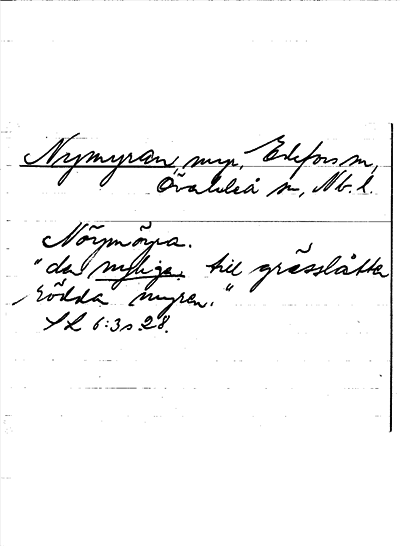 Nymyran, myr, Edefors sn,
Överluleå sn, Nb. l.
Nörmörra.
"den nyliga till grässlåtter
rödda myren."
SL 6:3 s. 28.